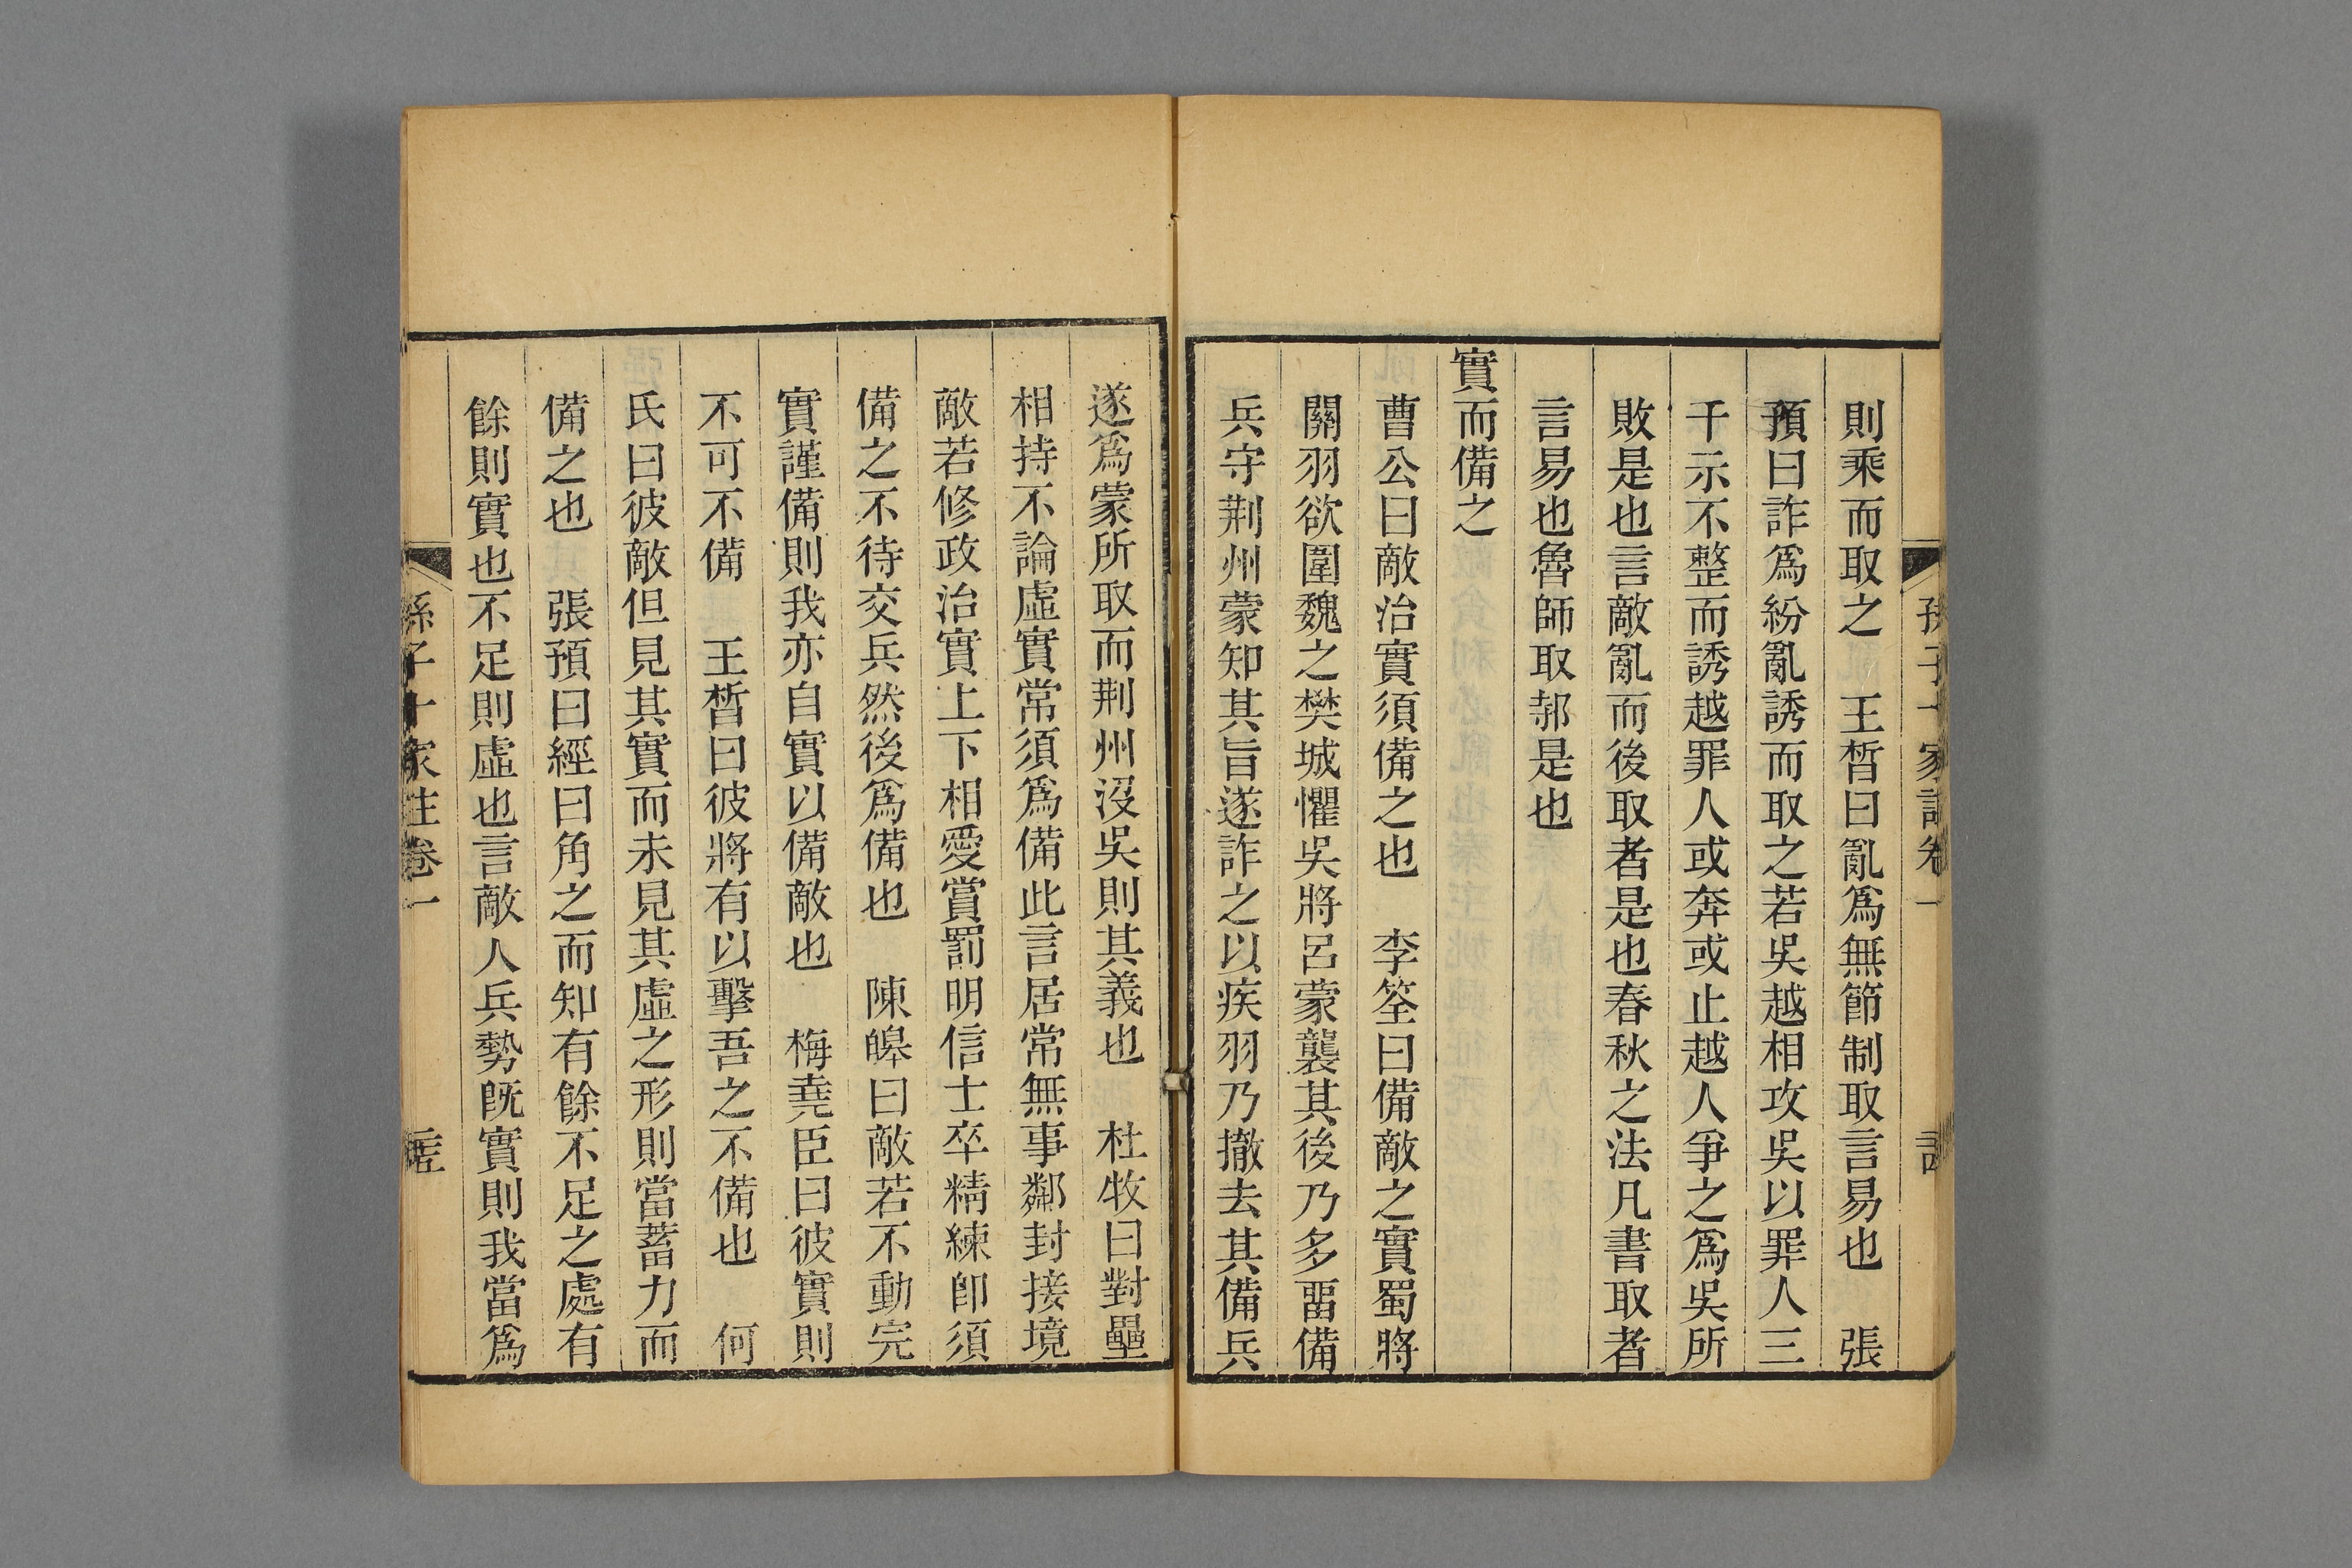 則乘而取之　王晳曰亂爲無節制取言易也　張
預曰詐爲紛亂誘而取之若吳越相攻吳以罪人三
千示不整而誘越罪人或奔或止越人爭之爲吳所
敗是也言敵亂而後取者是也春秋之法凡書取者
言易也魯師取邿是也
實而備之
曹公曰敵治實須備之也　李筌曰備敵之實蜀將
關羽欲圍魏之樊城懼吳將呂蒙襲其後乃多畱備
兵守荆州蒙知其旨遂詐之以疾羽乃撤去其備兵
遂爲蒙所取而荆州沒吳則其義也　杜牧曰對壘
相持不論虛實常須爲備此言居常無事鄰封接境
敵若修政治實上下相愛賞罰明信士卒精練卽須
備之不待交兵然後爲備也　陳皞曰敵若不動完
實謹備則我亦自實以備敵也　梅堯臣曰彼實則
不可不備　王晳曰彼將有以擊吾之不備也　何
氏曰彼敵但見其實而未見其虛之形則當蓄力而
備之也　張預曰經曰角之而知有餘不足之處有
餘則實也不足則虛也言敵人兵勢旣實則我當爲
孫子十家注卷一